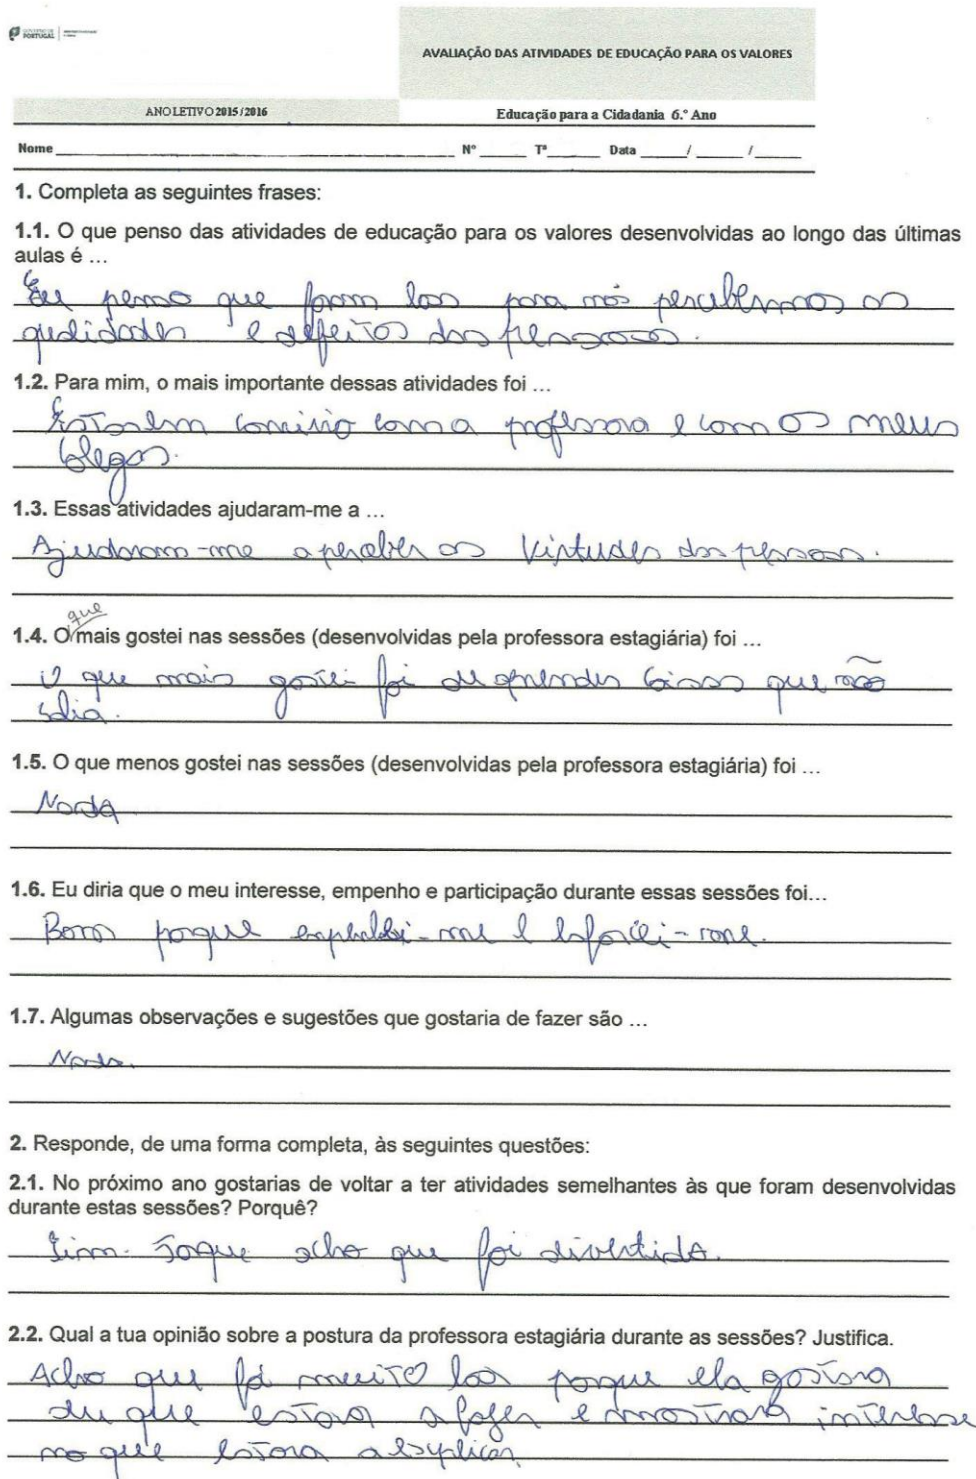 GOVERNO DE
PORTUGAL
AVALIAÇÃO DAS ATIVIDADES DE EDUCAÇÃO PARA OS VALORES
ANO LETIVO 2015/2016
Educação para a Cidadania 6.º Ano
Nome Nº Tª Data / /
1. Completa as seguintes frases:
1.1. O que penso das atividades de educação para os valores desenvolvidas ao longo das últimas
aulas é ...
Eu penso que foram boas para nós percebermos as
qualidades e defeitos das pessoas.
1.2. Para mim, o mais importante dessas atividades foi ...
Estar em convívio com a professora e com os meus
colegas.
1.3. Essas atividades ajudaram-me a ...
Ajudaram-me a perceber as virtudes das pessoas.
que
1.4. O mais gostei nas sessões (desenvolvidas pela professora estagiária) foi ...
O que mais gostei foi de aprender coisas que não
sabia.
1.5. O que menos gostei nas sessões (desenvolvidas pela professora estagiária) foi ...
Nada
1.6. Eu diria que o meu interesse, empenho e participação durante essas sessões foi...
Bom porque e
1.7. Algumas observações e sugestões que gostaria de fazer são ...
Nada.
2. Responde, de uma forma completa, às seguintes questões:
2.1. No próximo ano gostarias de voltar a ter atividades semelhantes às que foram desenvolvidas
durante estas sessões? Porquê?
Sim. Porque acho que foi divertido.
2.2. Qual a tua opinião sobre a postura da professora estagiária durante as sessões? Justifica.
Acho que foi muito boa porque ela gostava
du que estava a fazer e mostrava interesse
no que estava a explicar.